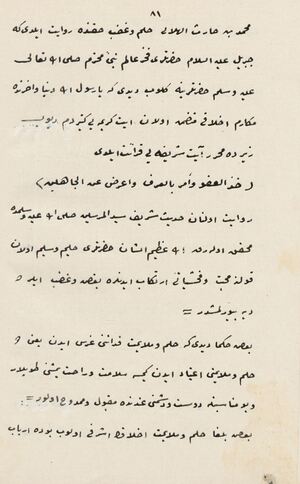 ٨١
محمد بن حارث الهلالی حلم وغضب حقنده روایت ایلدی که
جبریل علیه السلام حضرتلری فخر عالم نبی محترم صلی الله تعالی
علیه وسلم حضرتلرینه کلوب دیدی که یا رسول الله دنیا واخرتده
مکارم اخلاقی متضمن اولان ایت کریمه یی کتیردم دیوب
زیرده محرر آیت شریفه یی قرائت ایلدی
(خذ العفو وأمر بالعرف واعرض عن الجاهلین)
روایت اولنان حدیث شریف سید المرسلین صلی الله علیه وسلمده
محقق اولدرق الله عظیم الشان حضرتلری حلیم وسلیم اولان
قولنه محبت وفحشیاتی ارتکاب ایدنلره بغض وغضب ایدر
دیه بیورلمشدر =
بعض حکما دیدی که حلم وملایمت فدانی غرس ایدن یعنی
حلم وملایمتی اعتیاد ایدن کیمسه سلامت وراحت یمشی طوپلار
وبو مناسبتله دوست ودشمنی عندنده مقبول وممدوح اولور =
بعض بلغا حلم وملایمت اخلاقك اشرفی اولوب بوده ارباب